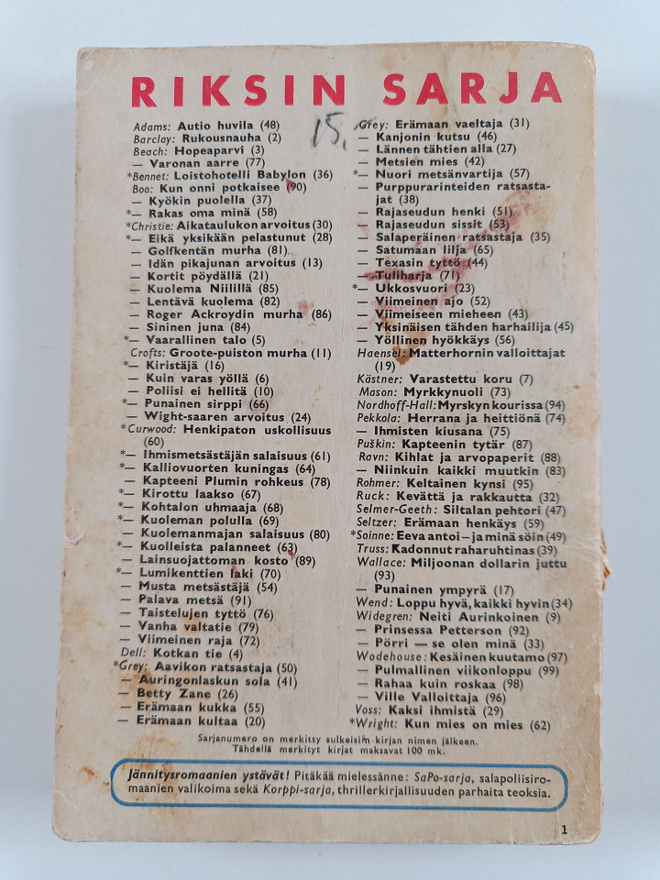 RIKSIN SARJA
15,
Adams: Autio huvila (48)
Barclay: Rukousnauha (2)
Beach: Hopeaparvi (3)
— Varonan aarre (77)
*Bennet: Loistohotelli Babylon (36)
Boo: Kun onni potkaisee (90)
— Kyökin puolella (37)
*— Rakas oma minä (58)
*Christie: Aikataulukon arvoitus (30)
*— Eikä yksikään pelastunut (28)
— Golfkentän murha (81)
— Idän pikajunan arvoitus (13)
— Kortit pöydällä (21)
— Kuolema Niilillä (85)
— Lentävä kuolema (82)
— Roger Ackroydin murha (86)
— Sininen juna (84)
*— Vaarallinen talo (5)
Crofts: Groote-puiston murha (11)
*— Kiristäjä (16)
— Kuin varas yöllä (6)
— Poliisi ei hellitä (10)
*— Punainen sirppi (66)
— Wight-saaren arvoitus (24)
*Curwood: Henkipaton uskollisuus
(60)
*— Ihmismetsästäjän salaisuus (61)
*— Kalliovuorten kuningas (64)
— Kapteeni Plumin rohkeus (78)
*— Kirottu laakso (67)
*— Kohtalon uhmaaja (68)
*— Kuoleman polulla (69)
— Kuolemanmajan salaisuus (80)
*— Kuolleista palanneet (63)
— Lainsuojattoman kosto (89)
*— Lumikenttien laki (70)
— Musta metsästäjä (54)
— Palava metsä (91)
— Taistelujen tyttö (76)
— Vanha valtatie (79)
— Viimeinen raja (72)
Dell: Kotkan tie (4)
*Grey: Aavikon ratsastaja (50)
— Auringonlaskun sola (41)
— Betty Zane (26)
— Erämaan kukka (55)
— Erämaan kultaa (20)
Grey: Erämaan vaeltaja (31)
— Kanjonin kutsu (46)
— Lännen tähtien alla (27)
— Metsien mies (42)
*— Nuori metsänvartija (57)
— Purppurarinteiden ratsasta-
jat (38)
— Rajaseudun henki (51)
— Rajaseudun sissit (53)
— Salaperäinen ratsastaja (35)
— Satumaan lilja (65)
— Texasin tyttö (44)
— Tuliharja (71)
*— Ukkosvuori (23)
— Viimeinen ajo (52)
— Viimeiseen mieheen (43)
— Yksinäisen tähden harhailija (45)
— Yöllinen hyökkäys (56)
Haensel: Matterhornin valloittajat
(19)
Kästner: Varastettu koru (7)
Mason: Myrkkynuoli (73)
Nordhoff-Hall: Myrskyn kourissa (94)
Pekkola: Herrana ja heittiönä (74)
— Ihmisten kiusana (75)
Puškin: Kapteenin tytär (87)
Ravn: Kihlat ja arvopaperit (88)
— Niinkuin kaikki muutkin (83)
Rohmer: Keltainen kynsi (95)
Ruck: Kevättä ja rakkautta (32)
Selmer-Geeth: Siltalan pehtori (47)
Seltzer: Erämaan henkäys (59)
*Soinne: Eeva antoi – ja minä söin (49)
Truss: Kadonnut raharuhtinas (39)
Wallace: Miljoonan dollarin juttu
(93)
— Punainen ympyrä (17)
Wend: Loppu hyvä, kaikki hyvin (34)
Widegren: Neiti Aurinkoinen (9)
— Prinsessa Petterson (92)
— Pörri — se olen minä (33)
Wodehouse: Kesäinen kuutamo (97)
— Pulmallinen viikonloppu (99)
— Rahaa kuin roskaa (98)
— Ville Valloittaja (96)
Voss: Kaksi ihmistä (29)
*Wright: Kun mies on mies (62)
Sarjanumero on merkitty sulkeisiin kirjan nimen jälkeen.
Tähdellä merkityt kirjat maksavat 100 mk.
Jännitysromaanien ystävät! Pitäkää mielessänne: SaPo-sarja, salapoliisiro-
maanien valikoima sekä Korppi-sarja, thrillerkirjallisuuden parhaita teoksia.
1